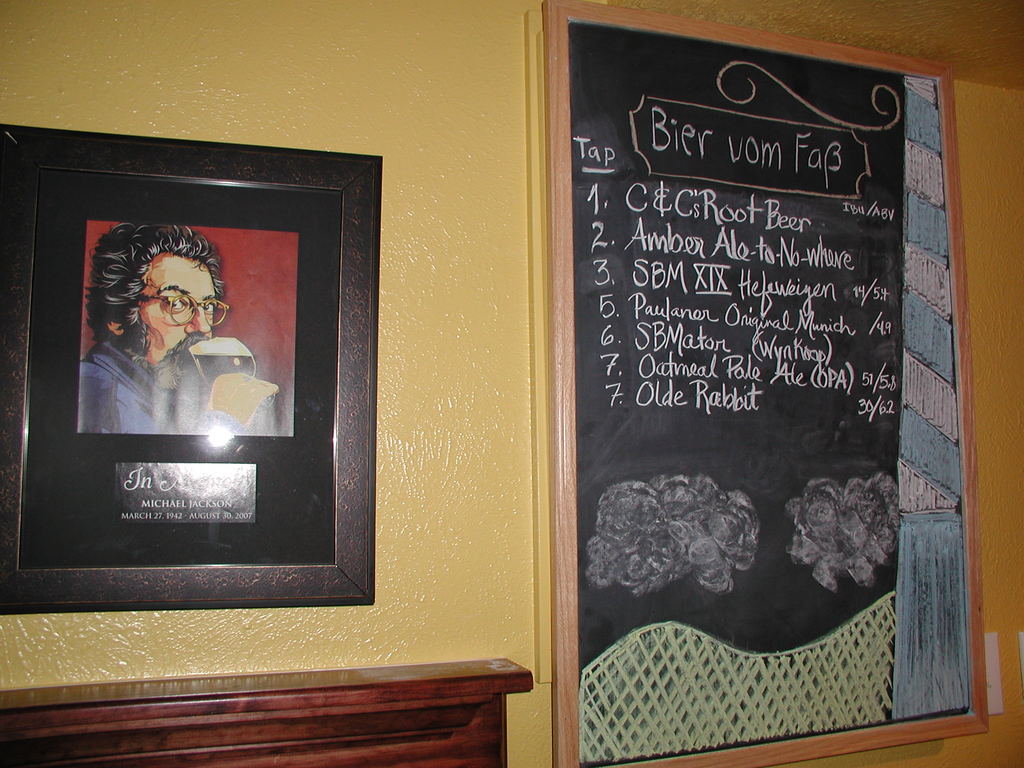 In
MICHAEL JACKSON
MARCH 27, 1942 - AUGUST 30, 2007
Bier vom Faß
Tap
IBU/ABV
1. C & C's Root Beer
2. Amber Ale-to-No-where
3. SBM XIX Hefeweizen 14/5.4
5. Paulaner Original Munich /4.9
6. SBMator (Wynkoop)
7. Oatmeal Pale Ale (OPA) 51/5.8
7. Olde Rabbit 30/6.2